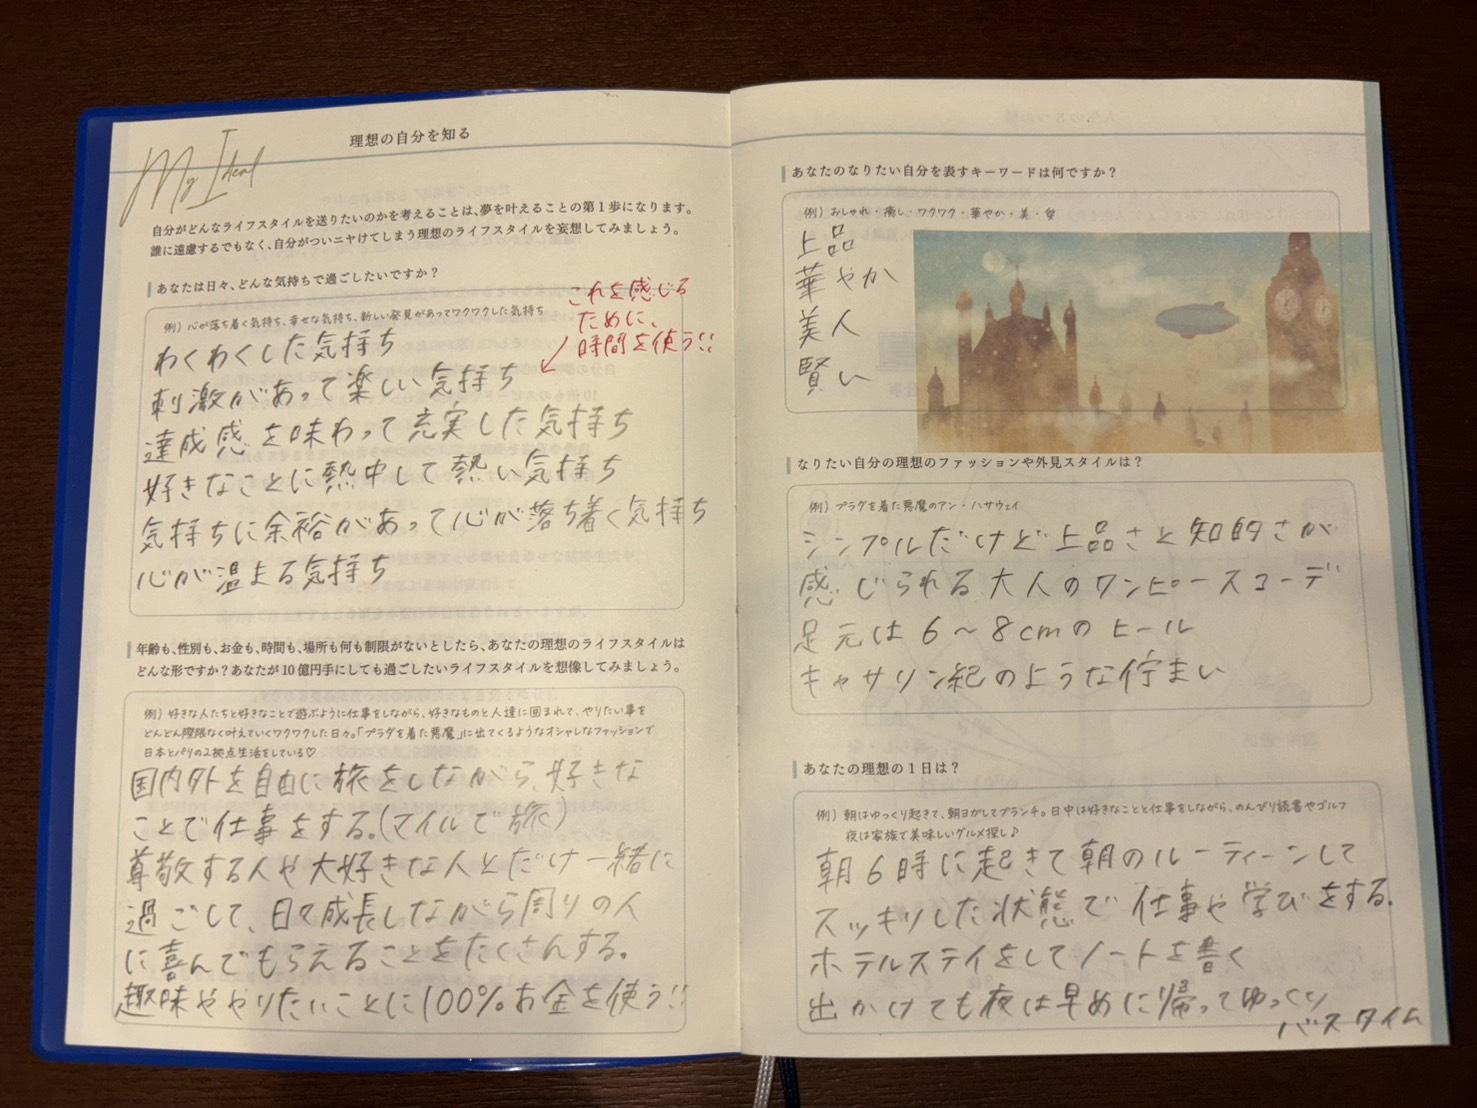 理想の自分を知る
My Ideal
自分がどんなライフスタイルを送りたいのかを考えることは、夢を叶えることの第1歩になります。
誰に遠慮するでもなく、自分がついニヤけてしまう理想のライフスタイルを妄想してみましょう。
あなたは日々、どんな気持ちで過ごしたいですか？
例）心が落ち着く気持ち、幸せな気持ち、新しい発見があってワクワクした気持ち
これを感じる
ために、
時間を使う!!
わくわくした気持ち
刺激があって楽しい気持ち
達成感を味わって充実した気持ち
好きなことに熱中して熱い気持ち
気持ちに余裕があって心が落ち着く気持ち
心が温まる気持ち
年齢も、性別も、お金も、時間も、場所も何も制限がないとしたら、あなたの理想のライフスタイルは
どんな形ですか？あなたが10億円手にしても過ごしたいライフスタイルを想像してみましょう。
例）好きな人たちと好きなことで遊ぶように仕事をしながら、好きなものと人達に囲まれて、やりたい事を
どんどん際限なく叶えていくワクワクした日々。「プラダを着た悪魔」に出てくるようなオシャレなファッションで
日本とパリの2拠点生活をしている♡
国内外を自由に旅をしながら、好きな
ことで仕事をする。(マイルで旅)
尊敬する人や大好きな人とだけ一緒に
過ごして、日々成長しながら周りの人
に喜んでもらえることをたくさんする。
趣味ややりたいことに100%お金を使う!!
あなたのなりたい自分を表すキーワードは何ですか？
例）おしゃれ・癒し・ワクワク・華やか・美・愛
上品
華やか
美人
賢い
なりたい自分の理想のファッションや外見スタイルは？
例）プラダを着た悪魔のアン・ハサウェイ
シンプルだけど上品さと知的さが
感じられる大人のワンピースコーデ
足元は6〜8cmのヒール
キャサリン妃のような佇まい
あなたの理想の1日は？
例）朝はゆっくり起きて、朝ヨガしてブランチ。日中は好きなことと仕事をしながら、のんびり読書やゴルフ
夜は家族で美味しいグルメ探し♪
朝6時に起きて朝のルーティーンして
スッキリした状態で仕事や学びをする。
ホテルステイをしてノートを書く
出かけても夜は早めに帰ってゆっくり
バスタイム